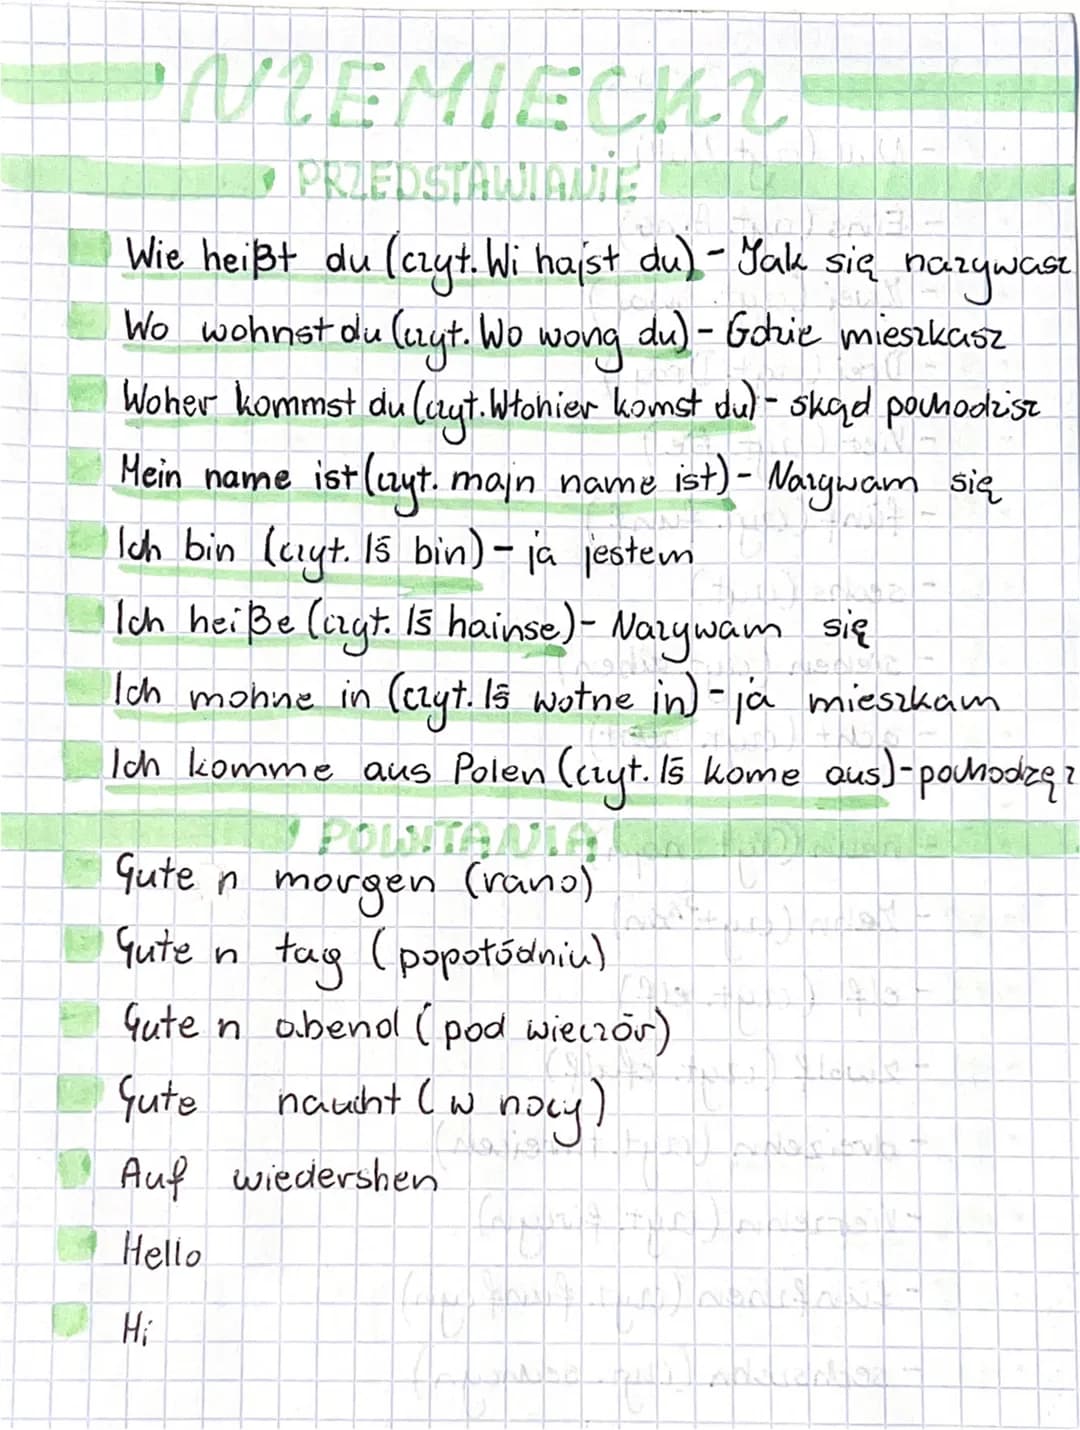 NIEMIECKI
PRZEDSTAWIANIE
Wie heißt du (czyt. Wi hajst du) - Jak się nazywasz
Wo wohnst du (czyt. Wo wong du) - Gdzie mieszkasz
Woher kommst du (czyt. Włohier komst du) - skąd pochodzisz
Mein name ist (czyt. majn name ist) - Nazywam się
Ich bin (czyt. Iś bin) - ja jestem
Ich heiße (czyt. Iś hainse) - Nazywam się
Ich mohne in (czyt. Iś wotne in) - ja mieszkam
Ich komme aus Polen (czyt. Iś kome aus) - pochodzę z
POWITANIA
Gute n morgen (rano)
Gute n tag (popołódniu)
Gute n abend (pod wieczór)
Gute naucht (w nocy)
Auf wiedershen
Hello
Hi